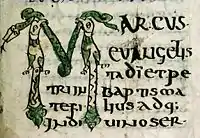 MARCUS
evangelis
ta d̄i et pe
tri in baptismate
filius adq:
in diuino ser